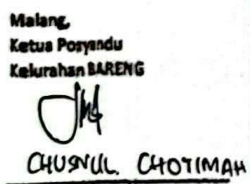 Malang,
Ketua Posyandu
Kelurahan BARENG
CHUSNUL. CHOTIMAH